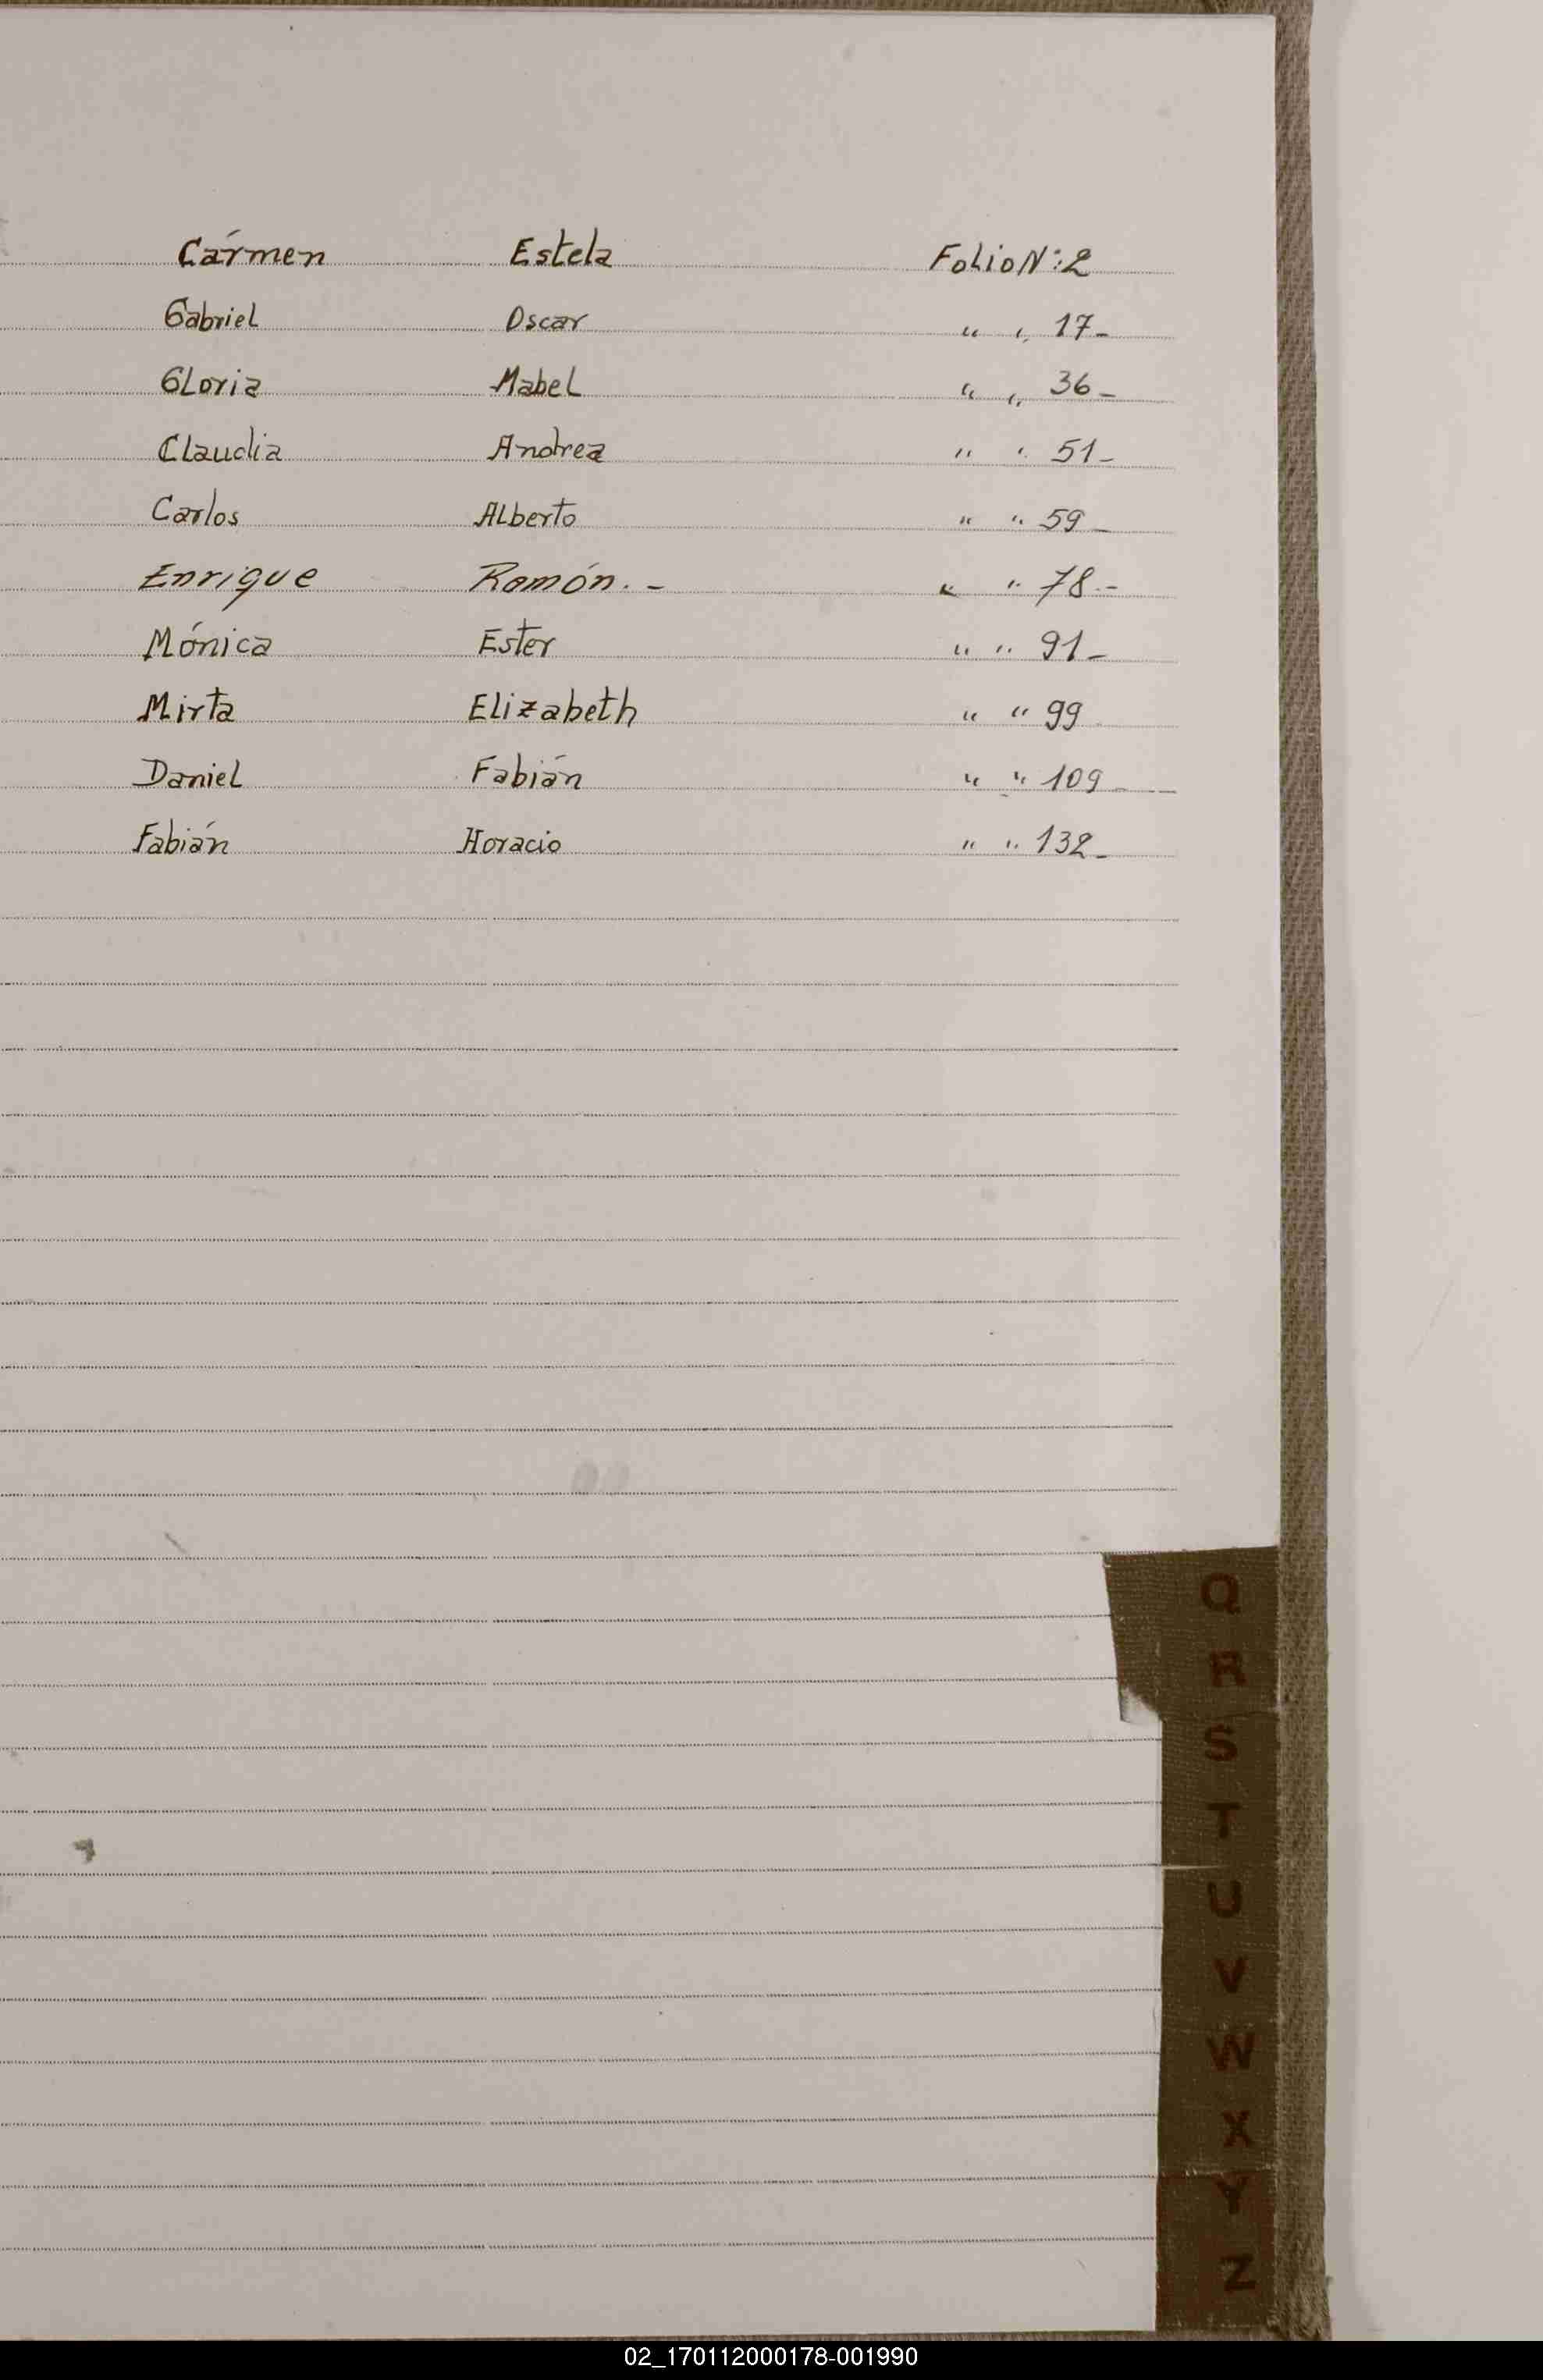 Cármen Estela Folio N: 2
Gabriel Oscar " " 17-
Gloria Mabel " " 36-
Claudia Andrea " " 51-
Carlos Alberto " " 59-
Enrique Ramón.- " " 78.-
Mónica Ester " " 91-
Mirta Elizabeth " " 99
Daniel Fabián " " 109-
Fabián Horacio " " 132-
Q
R
S
T
U
V
W
X
Y
Z
02_170112000178-001990